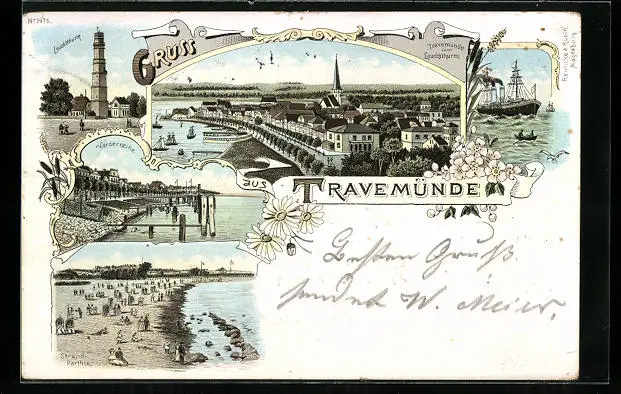 No 1975.
Leuchtthurm
GRUSS
Travemünde
vom
Leuchtthurm
Reinicke & Rubin
Magdeburg
Vorderreihe
AUS TRAVEMÜNDE
Besten Gruß
sendet W. Meier.
Strand-
Parthie.